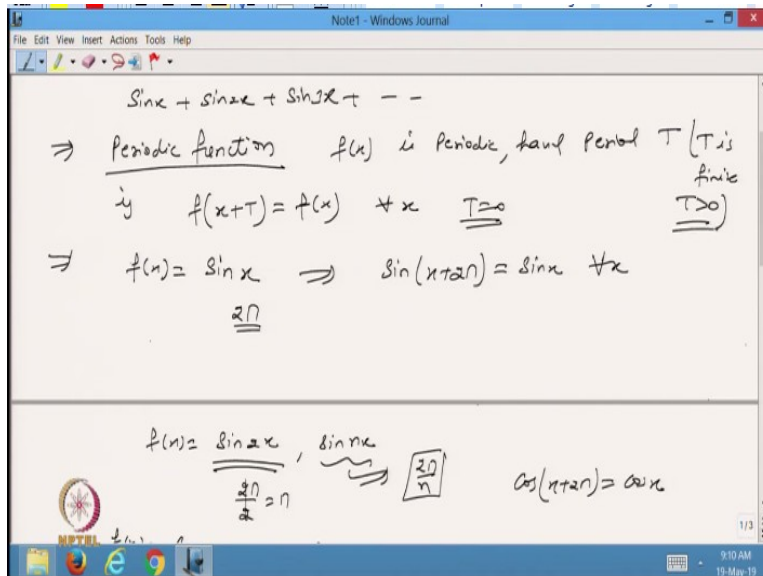 Note1 - Windows Journal
File Edit View Insert Actions Tools Help
Sinx + Sin2x + Sin3x + - -
⇒ Periodic function f(x) is Periodic, have Period T (T is finite
if f(x+T) = f(x) ∀x T=∞ T>0)
⇒ f(x) = Sinx ⇒ Sin(x+2π) = Sinx ∀x
2π
f(x) = Sin2x, Sin nx
2π/2 = π 2π/n Cos(x+2π) = Cosx
1/3
NPTEL
9:10 AM
19-May-19